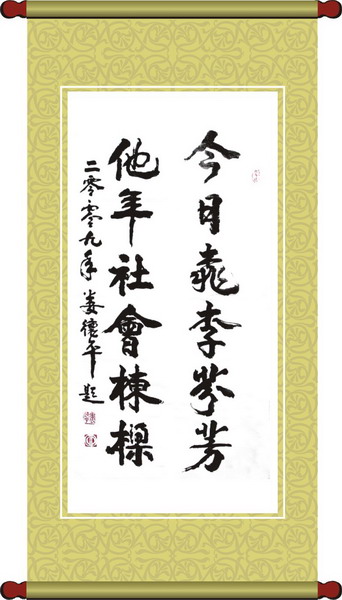 今日桃李芬芳
他年社會棟樑
二零零九年 娄德平題